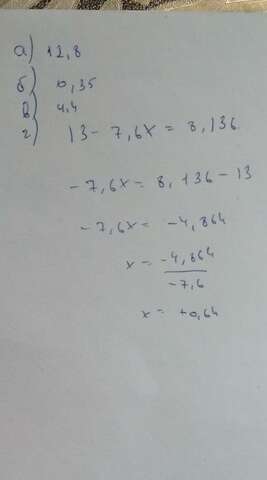 а) 12,8
б) 0,35
в) 4,4
г) 13 - 7,6x = 8,136
- 7,6x = 8,136 - 13
- 7,6x = - 4,864
x = -4,864
-7,6
x = +0,64